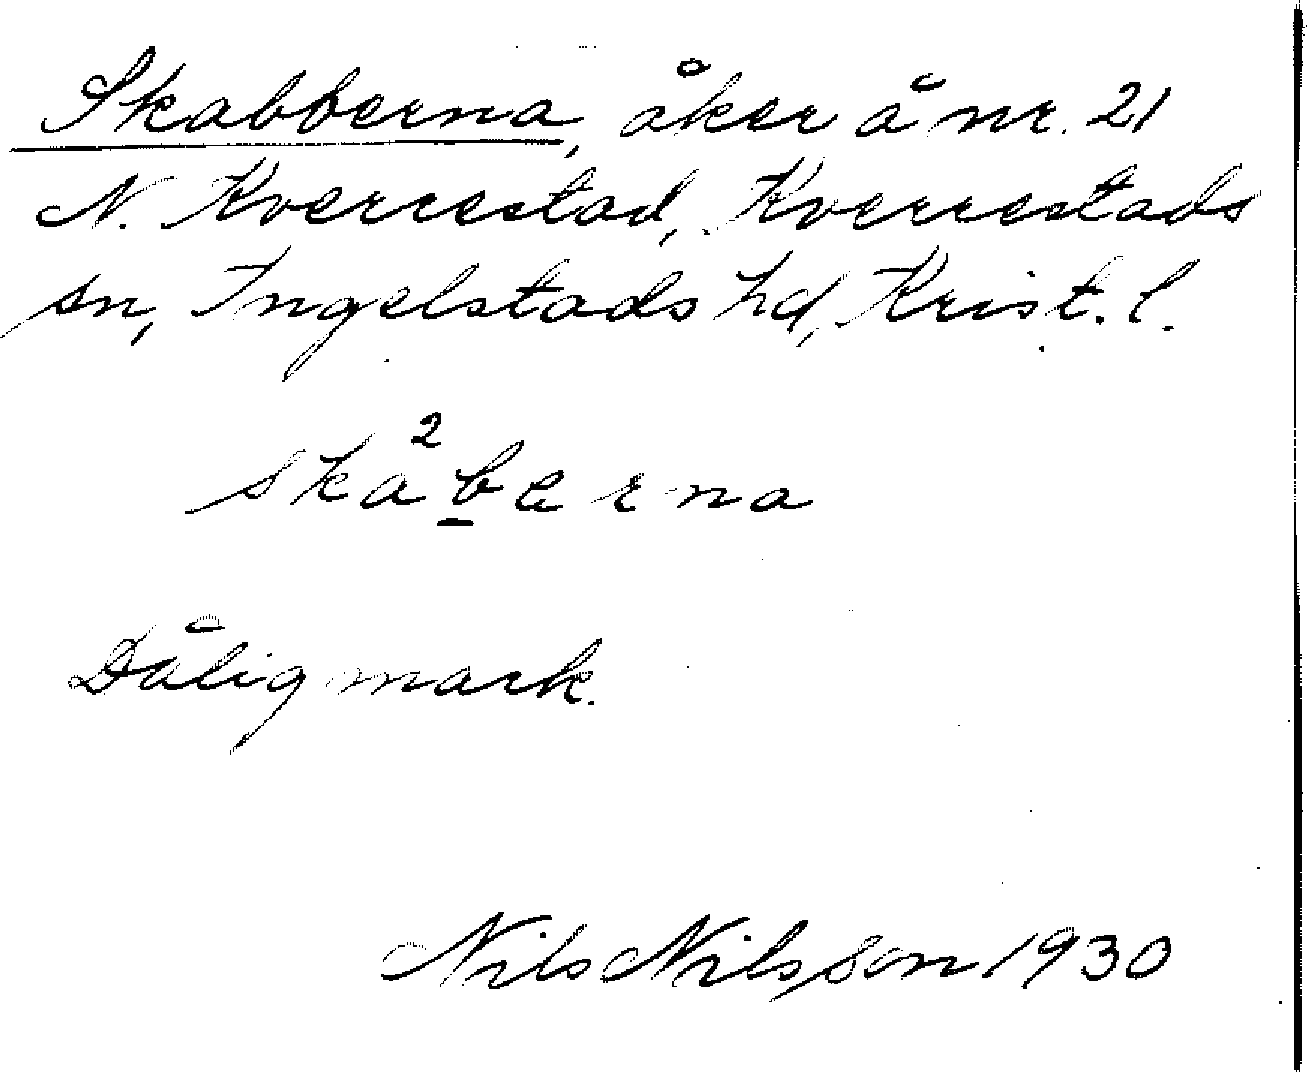 Skabberna, åker å nr. 21
N. Kverrestad, Kverrestads
sn, Ingelstads hd, Krist. l.
ska²b̲erna
Dålig mark.
Nils Nilsson 1930